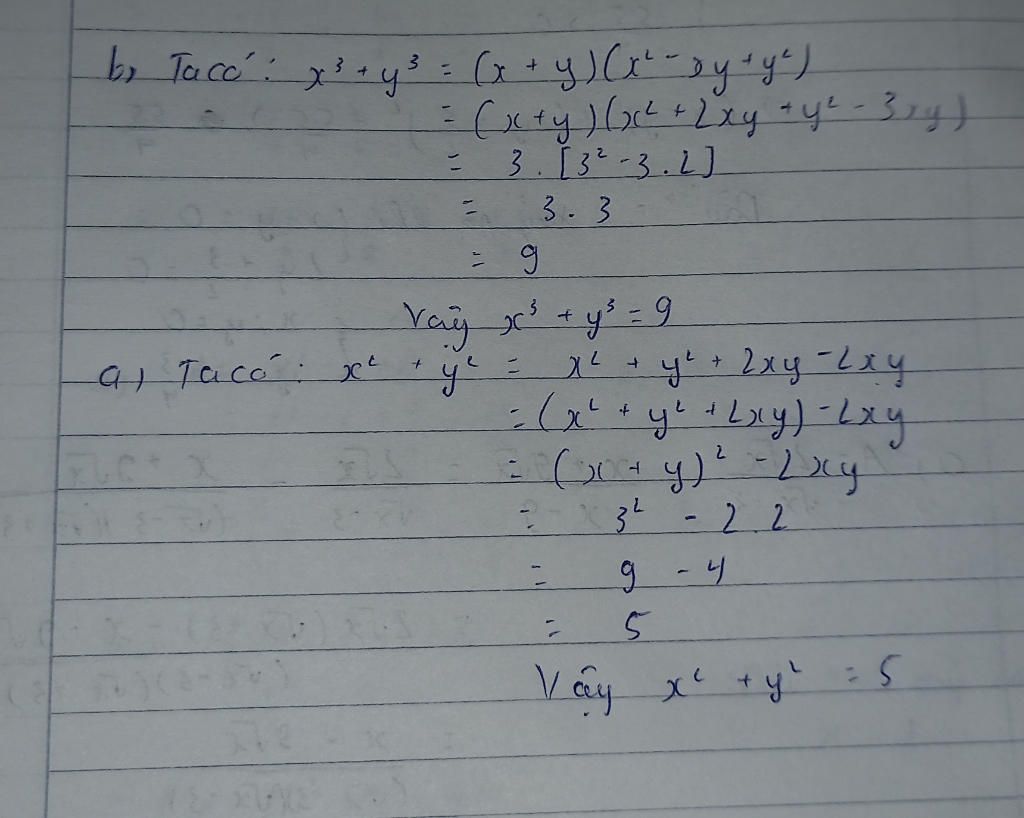 b, Ta có: x³ + y³ = (x + y)(x² - xy + y²)
= (x + y)(x² + 2xy + y² - 3xy)
= 3 . [3² - 3 . 2]
= 3 . 3
= 9
Vậy x³ + y³ = 9
a, Ta có: x² + y² = x² + y² + 2xy - 2xy
= (x² + y² + 2xy) - 2xy
= (x + y)² - 2xy
= 3² - 2.2
= 9 - 4
= 5
Vậy x² + y² = 5